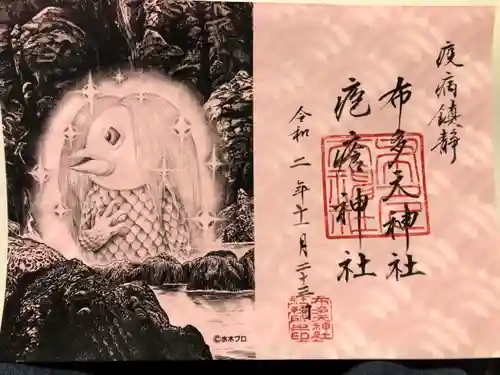 疫病鎮静
布多天神社
疱瘡神社
令和二年十一月二十三日
©水木プロ